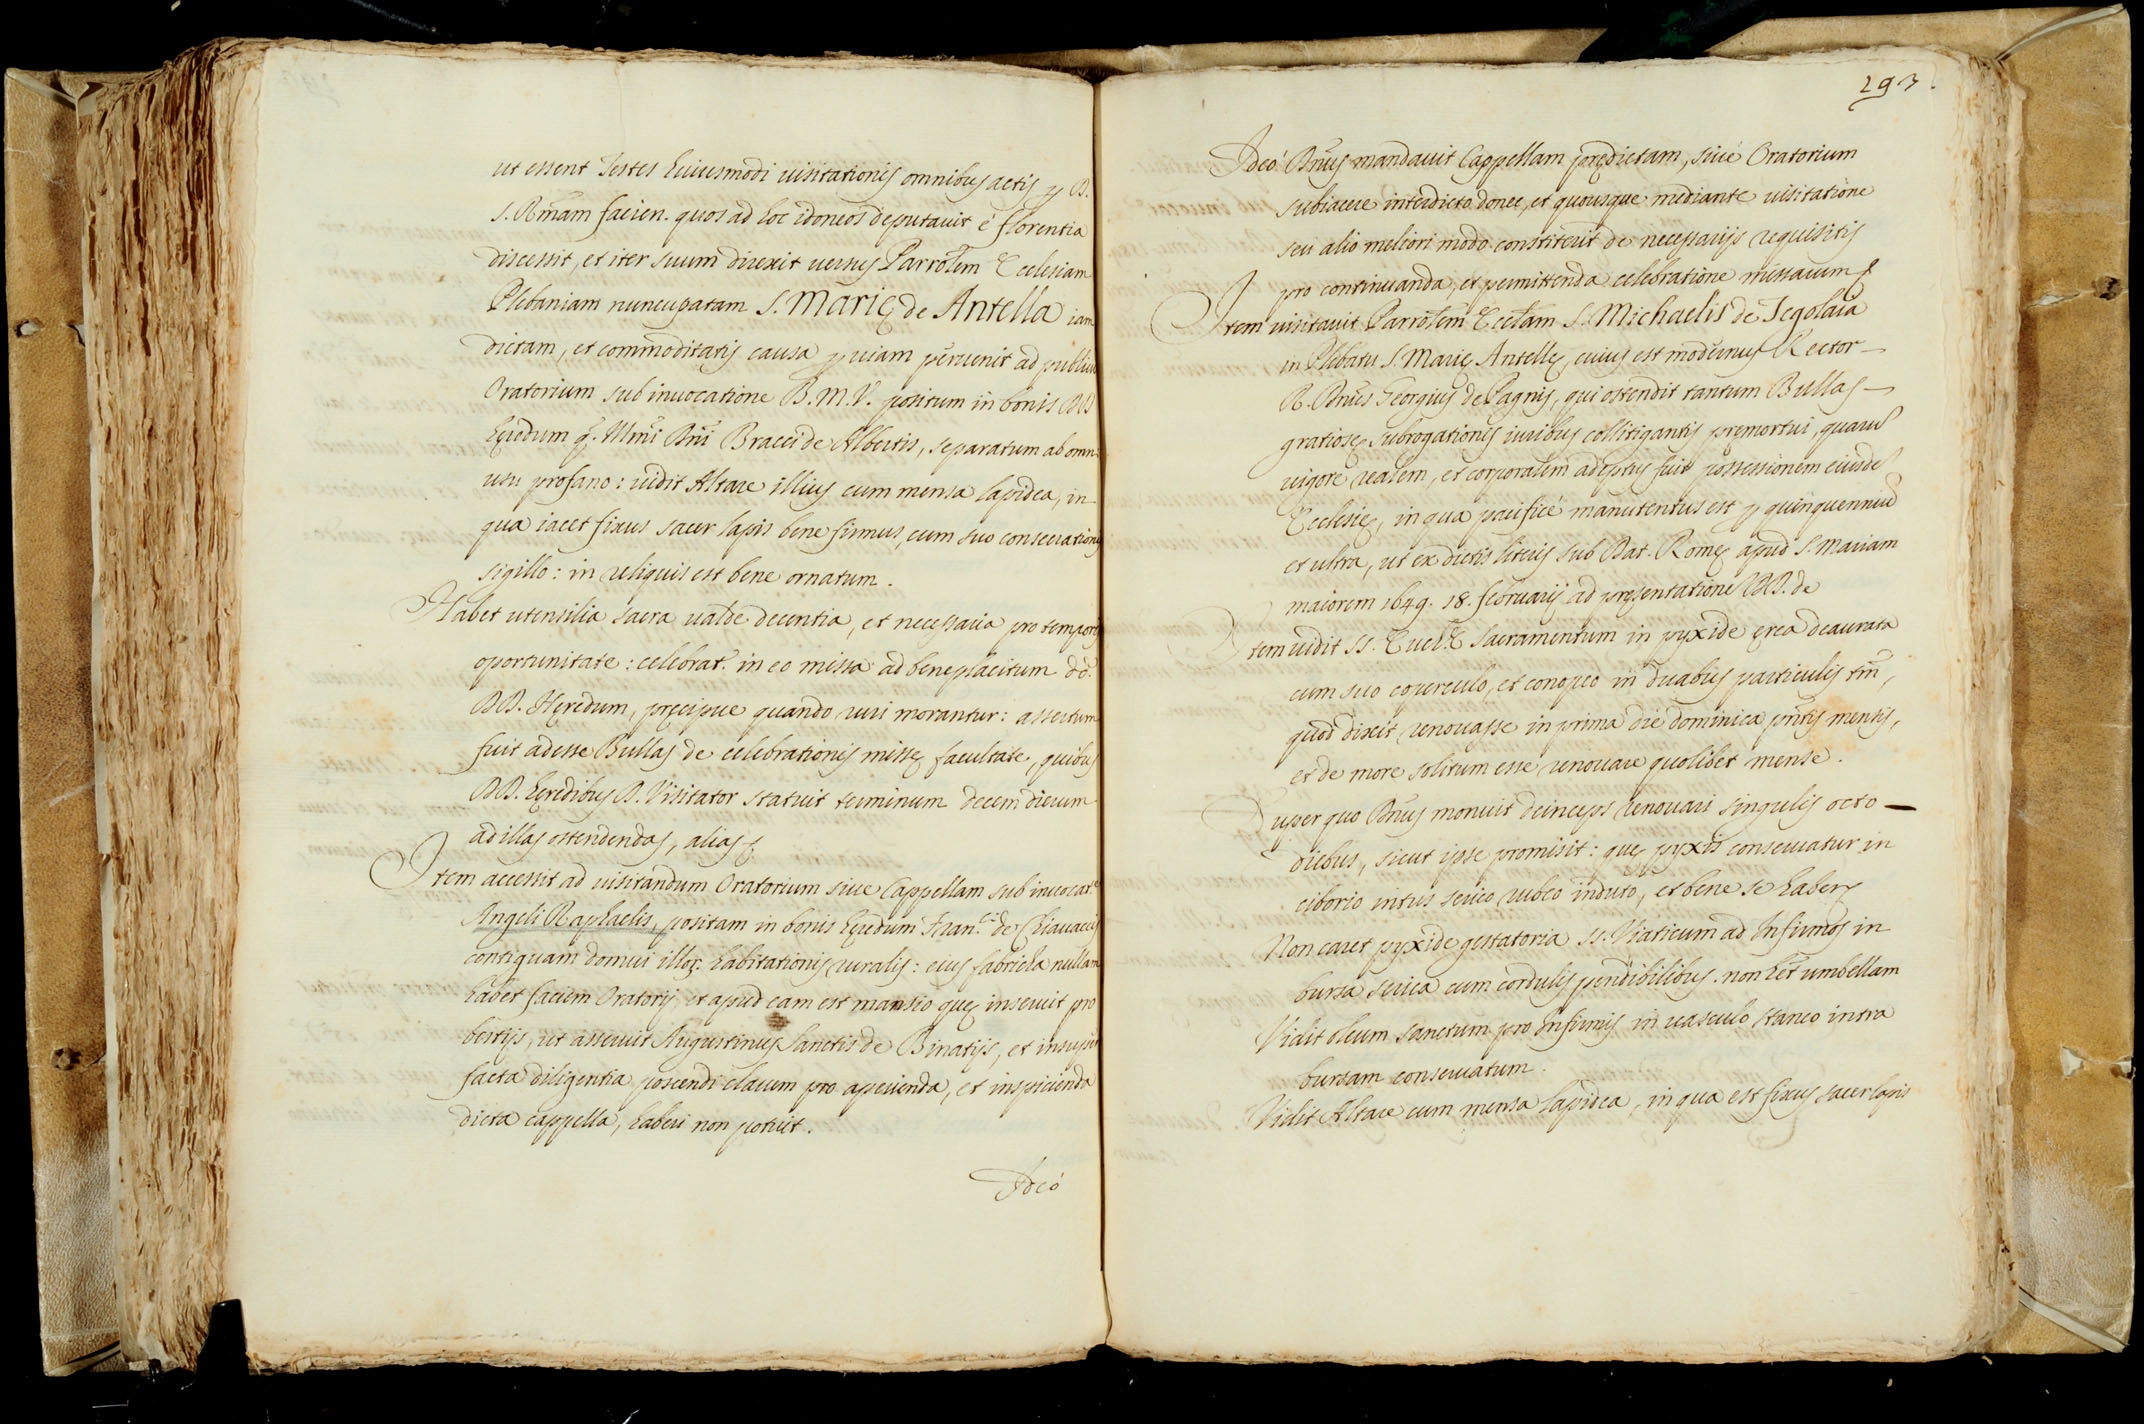 ut essent Testes huiusmodi uisitationis omnibus actis p D.
S. Rmam facien. quos ad hoc idoneos deputauit è florentia
discessit, et iter suum direxit uersus Parrolem Ecclesiam
Plebaniam nuncupatam S. Marię de Antella iam
dictam, et commoditatis causa p uiam peruenit ad publicu
Oratorium sub inuocatione B.M.V. positum in bonis DD
hęredum q. Illmi Dni Bracci de Albertis, separatum ab omni
usu profano: uidit Altare illius cum mensa lapidea, in
qua iacet fixus sacer lapis bene firmus, cum suo consecrationis
sigillo: in reliquis est bene ornatum.
Habet utensilia sacra ualde decentia, et necessaria pro temporis
oportunitate: celebrat. in eo missa ad beneplacitum do.
DD. Hęredum, pręcipue quando ruri morantur: assertum
fuit adesse Bullas de celebrationis missę facultate, quibus
DD. hęredibus D. Visitator statuit terminum decem dierum
ad illas ostendendas, alias
Item accessit ad uisitandum Oratorium siue Cappellam sub inuocat.e
Angeli Raphaelis, positam in bonis hęredum Fran.ci de Chiauaccis
contiguam domui illor. habitationis ruralis: eius fabrica nullam
habet faciem Oratorij, et apud eam est mansio quę inseruit pro
bestijs, ut asseruit Augustinus Sanctis de Binatijs, et insuper
facta diligentia poscendi clauem pro aperienda, et inspicienda
dicta cappella, haberi non potuit.
Ideó
293.
Ideó Dnus mandauit Cappellam prędictam, siué Oratorium
subiacere interdicto donec, et quousque mediante uisitatione
seu alio meliori modo constiterit de necessarijs requisitis
pro continuanda, et permittenda celebratione missarum
Item uisitauit Parrolem Ecclam S. Michaelis de Tegolaia
in Plebatu S. Marię Antellę, cuius est modernus Rector
R. Dnus Georgius de Pagnis, qui ostendit tantum Bullas
gratiosę subrogationis iuribus collitigantis premortui, quaru
uigore realem, et corporalem adeptus fuit possessionem eiusde
Ecclesię, in qua pacificé manutentus est p quinquenniu
et ultra, ut ex dictis literis sub Dat. Romę apud S. Mariam
maiorem 1649. 18. februarij ad pręsentatione DD. de
Item uidit SS. Euch.E Sacramentum in pyxide ęrea deaurata
cum suo coperculo, et conopeo in duabus particulis tm,
quod dixit renouasse in prima die dominica pntis mensis,
et de more solitum esse renouare quolibet mense.
Super quo Dnus monuit deinceps renouari singulis octo
diebus, sicut ipse promisit: quę pyxis conseruatur in
ciborio intus serico rubeo induto, et bene se habet
Non caret pyxide gestatoria SS. Viaticum ad Infirmos in
bursa serica cum cordulis pendibilibus. non het umbellam
Vidit oleum sanctum pro Infirmis in uasculo staneo intra
bursam conseruatum.
Vidit Altare cum mensa lapidea, in qua est fixus sacer lapis